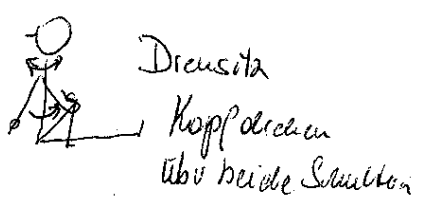 Drehsitz
Kopf drehen
über beide Schultern